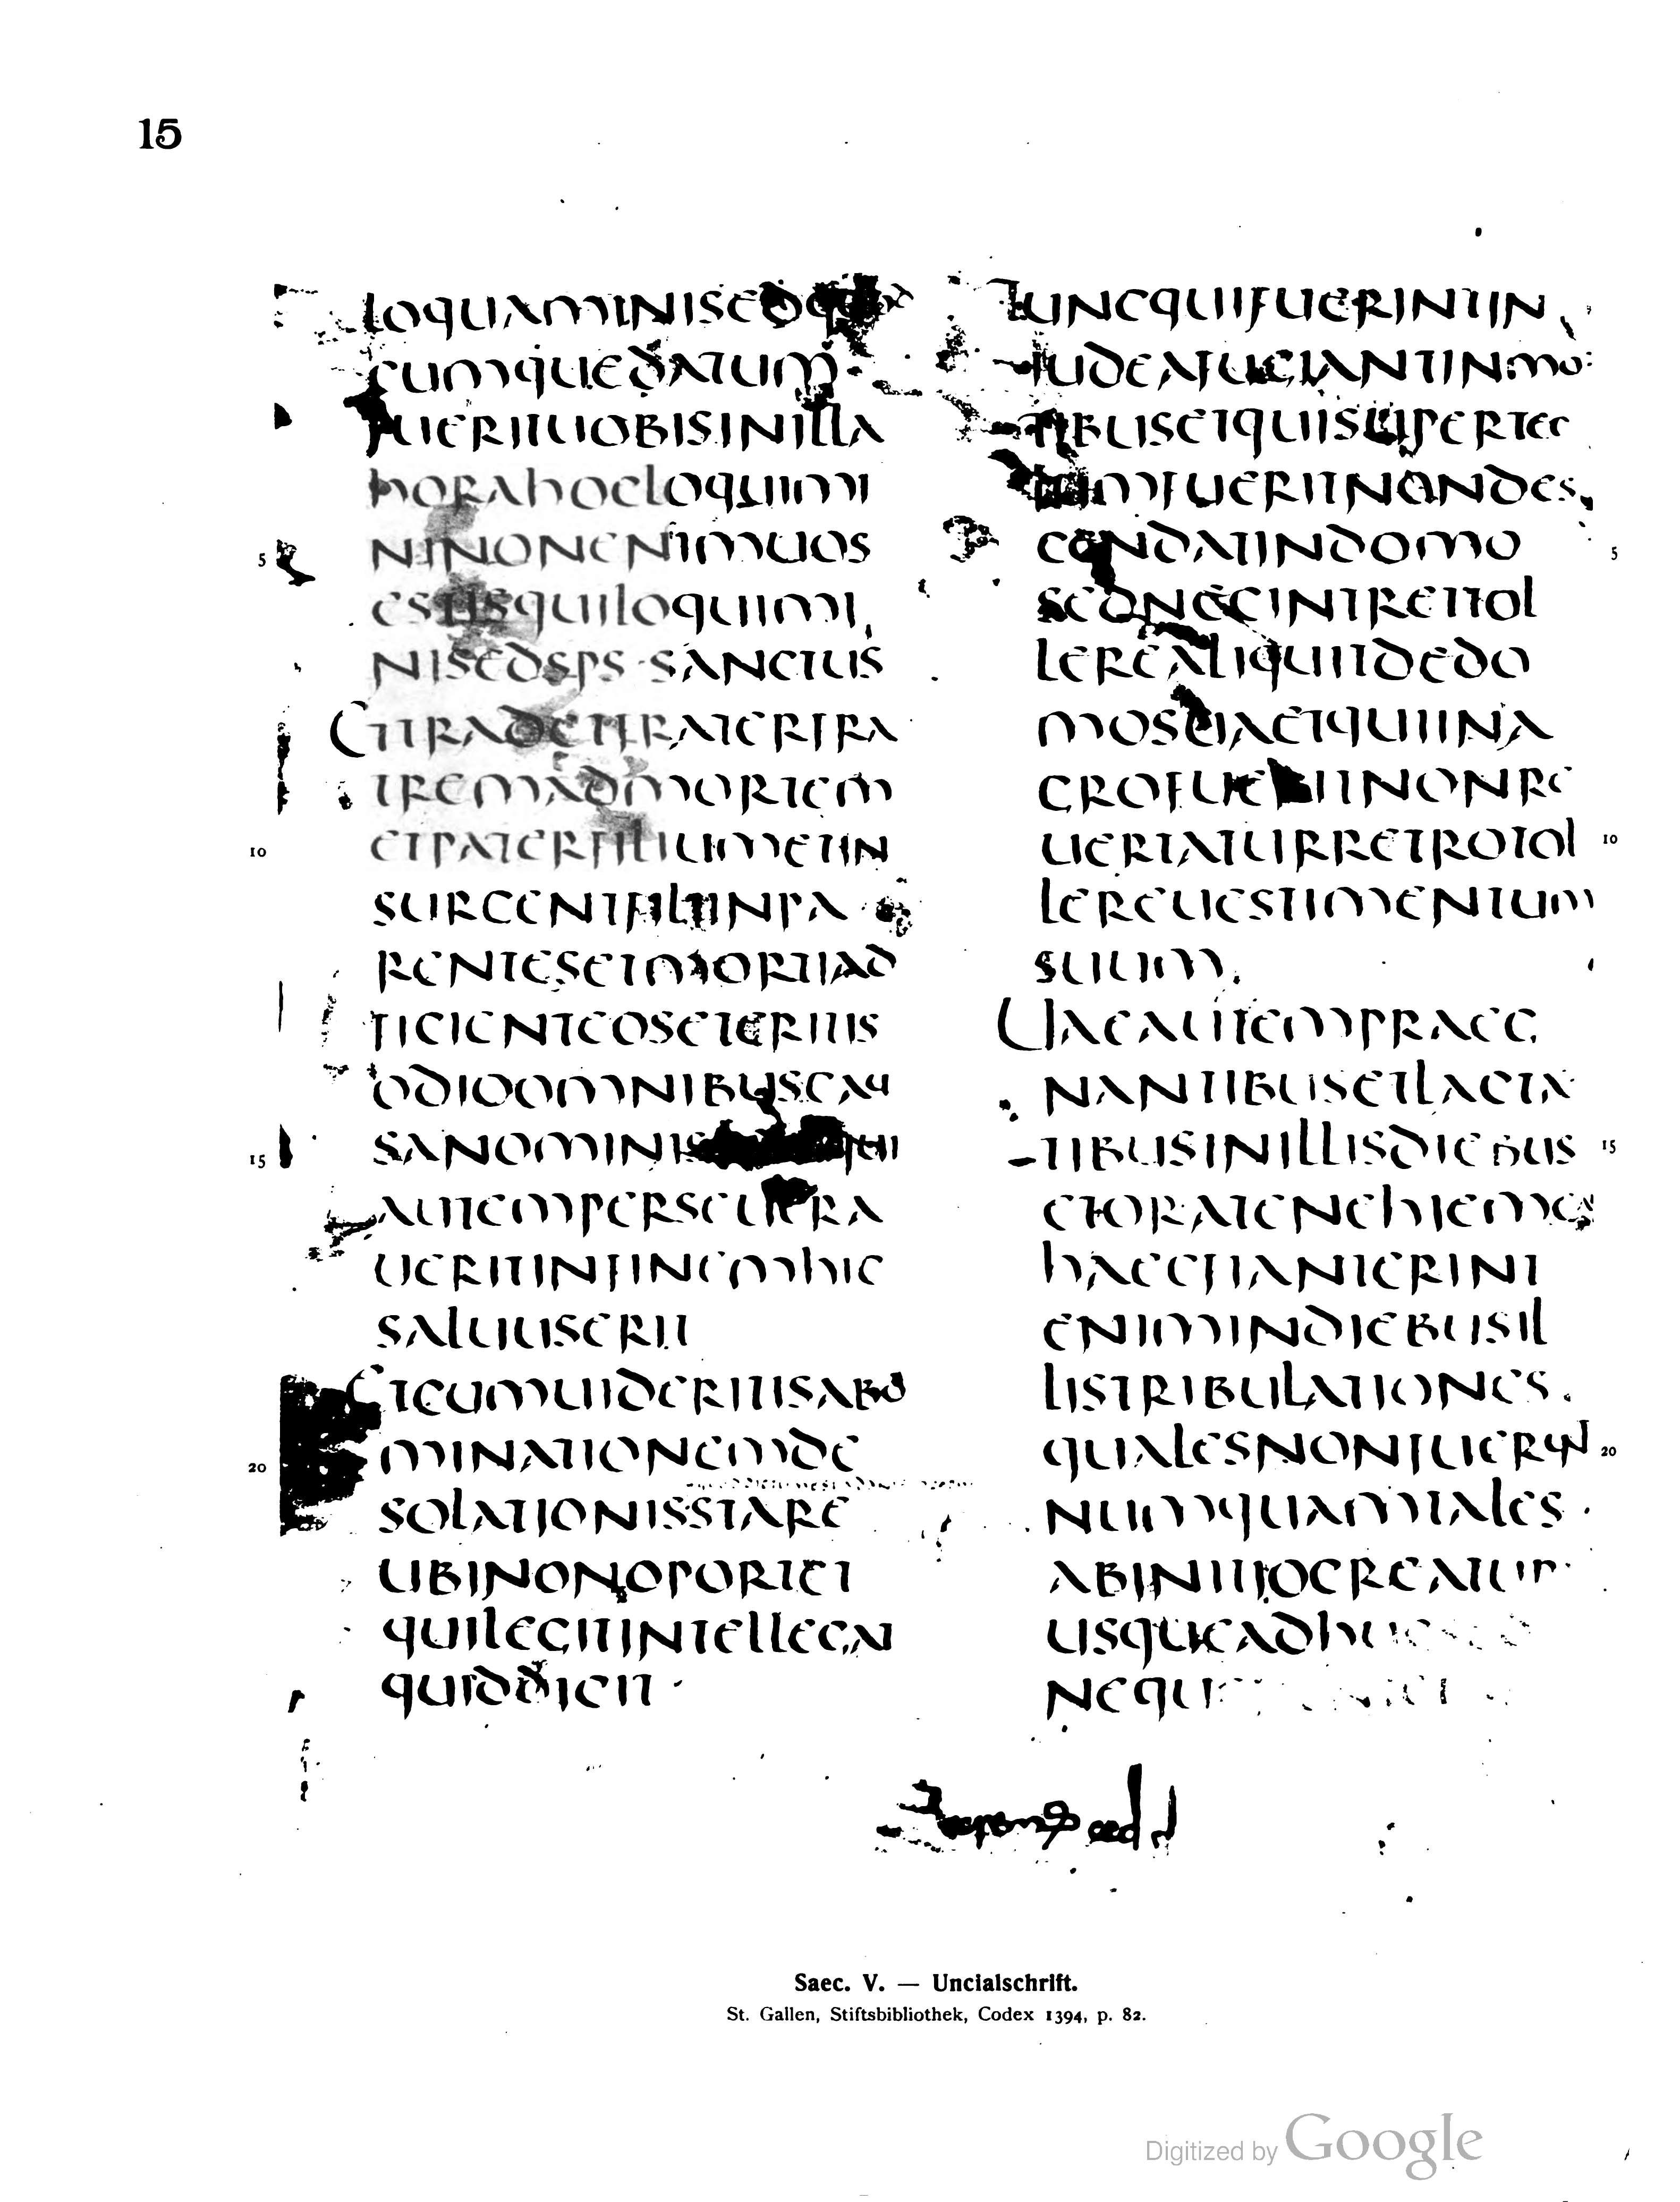 15
LOQUAMINISED
CUMQUEDATUM
FUERITUOBISINILLA
hORAhOCLOQUIMI
5
NINONENIMUOS
ESTISQUILOQUIMI
NISEDSPSSANCTUS
ETTRADETFRATERFRA
TREMADMORTEM
10
ETPATERFILIUMETIN
SURGENTFILIINPA
RENTESETMORTIAD
FICIENTEOSETERITIS
ODIOOMNIBUSCAU
15
SANOMINIS
AUTEMPERSEUERA
UERITINFINEMhIC
SALUUSERIT
ETCUMUIDERITISABO
20
MINATIONEMDE
SOLATIONISSTARE
UBINONOPORTET
QUILEGITINTELLEGAT
QUIDDICIT
TUNCQUIFUERINTIN
IUDEAFUGIANTINMO
TIBUSETQUISUPERTEC
TUMFUERITNONDES
CENDATINDOMO
5
SEDNECINTRETTOL
LEREALIQUITDEDO
MOSUAETQUIINA
GROFUERITNONRE
UERTATURRETROTOL
10
LEREUESTIMENTUM
SUUM
UAEAUTEMPRAEG
NANTIBUSETLACTA
TIBUSINILLISDIEBUS
15
ETORATENEhIEME
hAECFIANTERINT
ENIMINDIEBUSIL
LISTRIBULATIONES
QUALESNONFUERUN
20
NUMQUAMTALES
ABINITIOCREATUR
USQUEADhUC
NEQUE
Saec. V. — Uncialschrift.
St. Gallen, Stiftsbibliothek, Codex 1394, p. 82.
Digitized by Google